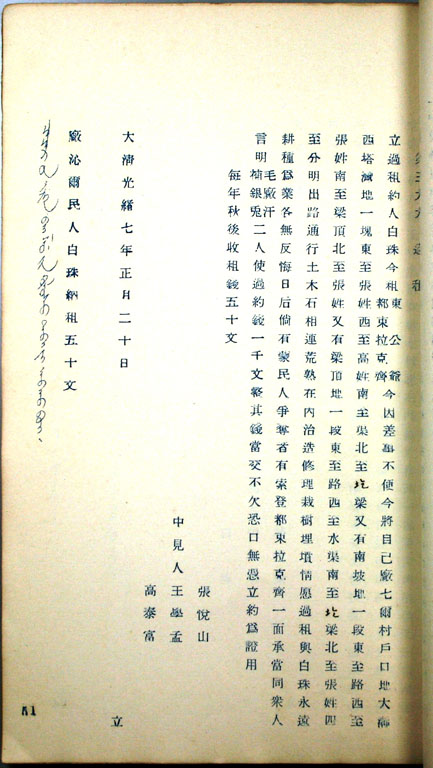 立過租約人白珠今租東公爺都東拉克齊今因差事不便今將自己廠七爾村戶口地大神
西塔灣地一塊東至張姓西至高姓南至渠北至圪梁又有南坡地一段東至路西至
張姓南至梁頂北至張姓又有梁頂地一段東至路西至水渠南至圪梁北至張姓四
至分明出路通行土木石相連荒熟在內治造修理栽樹埋墳情愿過租與白珠永遠
耕種爲業各無反悔日后倘有蒙民人爭奪者有索登都東拉克齊一面承當同衆人
言明毛廠汗埔銀兎二人使過約錢一千文整其錢當交不欠恐口無憑立約爲證用
每年秋後收租錢五十文
張悅山
中見人王學孟
高泰富
大清光緒七年正月二十日
立
廠沁爾民人白珠納租五十文
51